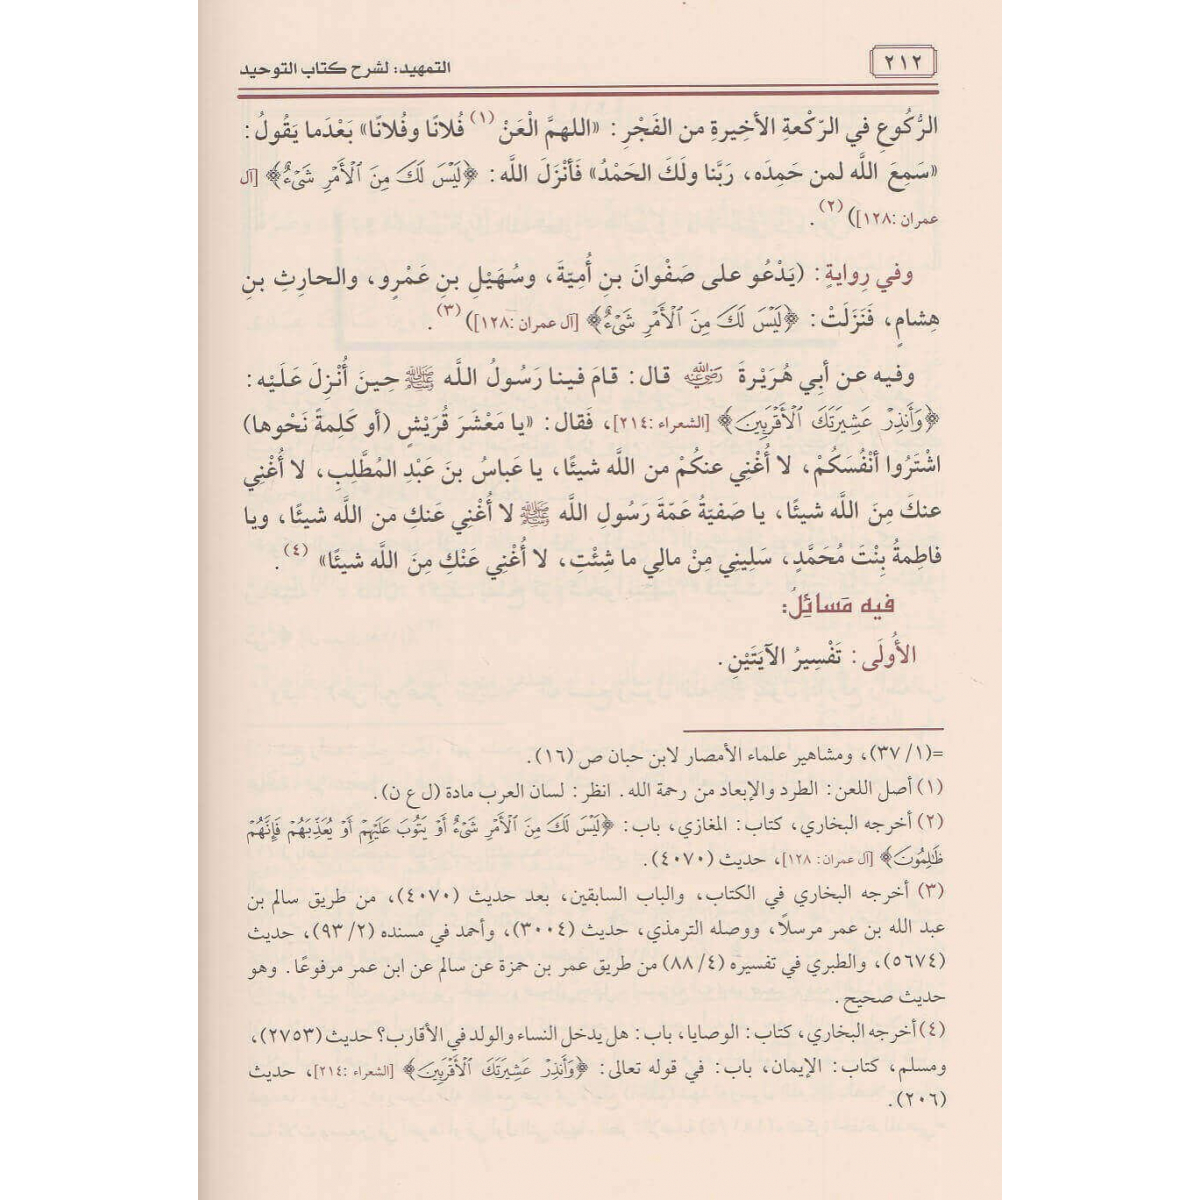 ٢١٢
التمهيد: لشرح كتاب التوحيد
الرُّكُوعِ في الرّكْعةِ الأخِيرةِ من الفَجْرِ: «اللهمَّ الْعَنْ (١) فُلانًا وفُلانًا» بَعْدَما يَقُولُ:
«سَمِعَ اللَّه لمن حَمِدَه، رَبَّنا ولَكَ الحَمْدُ» فَأنْزَلَ اللَّه: ﴿لَيْسَ لَكَ مِنَ الْأَمْرِ شَيْءٌ﴾ [آل
عمران: ١٢٨])(٢).
وفي رِوايةٍ: (يَدْعُو على صَفْوانَ بنِ أُمِيّةَ، وسُهَيْلِ بنِ عَمْرو، والحارِثِ بنِ
هِشامٍ، فَنَزَلَتْ: ﴿لَيْسَ لَكَ مِنَ الْأَمْرِ شَيْءٌ﴾ [آل عمران: ١٢٨])(٣).
وفيه عن أبِي هُرَيْرةَ رضي الله عنه قال: قامَ فينا رَسُولُ اللَّه ﷺ حِينَ أُنْزِلَ عَلَيْه:
﴿وَأَنذِرْ عَشِيرَتَكَ الْأَقْرَبِينَ﴾ [الشعراء: ٢١٤]، فَقال: «يا مَعْشَرَ قُرَيْشٍ (أو كَلِمةً نَحْوها)
اشْتَرُوا أنْفُسَكُمْ، لا أُغْنِي عنكُمْ من اللَّه شيئًا، يا عَباسُ بنَ عَبْدِ المُطَّلِبِ، لا أُغْنِي
عنكَ مِنَ اللَّه شيئًا، يا صَفيّةُ عَمّةَ رَسُولِ اللَّه ﷺ لا أُغْنِي عَنكِ من اللَّه شيئًا، ويا
فاطِمةُ بِنْتَ مُحَمَّدٍ، سَلِيني مِنْ مالِي ما شِئْتِ، لا أُغْنِي عَنْكِ مِنَ اللَّه شيئًا» (٤).
فيه مَسائِلُ:
الأُولَى: تَفْسِيرُ الآيَتَيْنِ.
=(١/ ٣٧)، ومشاهير علماء الأمصار لابن حبان ص (١٦).
(١) أصل اللعن: الطرد والإبعاد من رحمة الله. انظر: لسان العرب مادة (ل ع ن).
(٢) أخرجه البخاري، كتاب: المغازي، باب: ﴿لَيْسَ لَكَ مِنَ الْأَمْرِ شَيْءٌ أَوْ يَتُوبَ عَلَيْهِمْ أَوْ يُعَذِّبَهُمْ فَإِنَّهُمْ
ظَالِمُونَ﴾ [آل عمران: ١٢٨]، حديث (٤٠٧٠).
(٣) أخرجه البخاري في الكتاب، والباب السابقين، بعد حديث (٤٠٧٠)، من طريق سالم بن
عبد الله بن عمر مرسلًا، ووصله الترمذي، حديث (٣٠٠٤)، وأحمد في مسنده (٢/ ٩٣)، حديث
(٥٦٧٤)، والطبري في تفسيره (٤/ ٨٨) من طريق عمر بن حمزة عن سالم عن ابن عمر مرفوعًا. وهو
حديث صحيح.
(٤) أخرجه البخاري، كتاب: الوصايا، باب: هل يدخل النساء والولد في الأقارب؟ حديث (٢٧٥٣)،
ومسلم، كتاب: الإيمان، باب: في قوله تعالى: ﴿وَأَنذِرْ عَشِيرَتَكَ الْأَقْرَبِينَ﴾ [الشعراء: ٢١٤]، حديث
(٢٠٦).